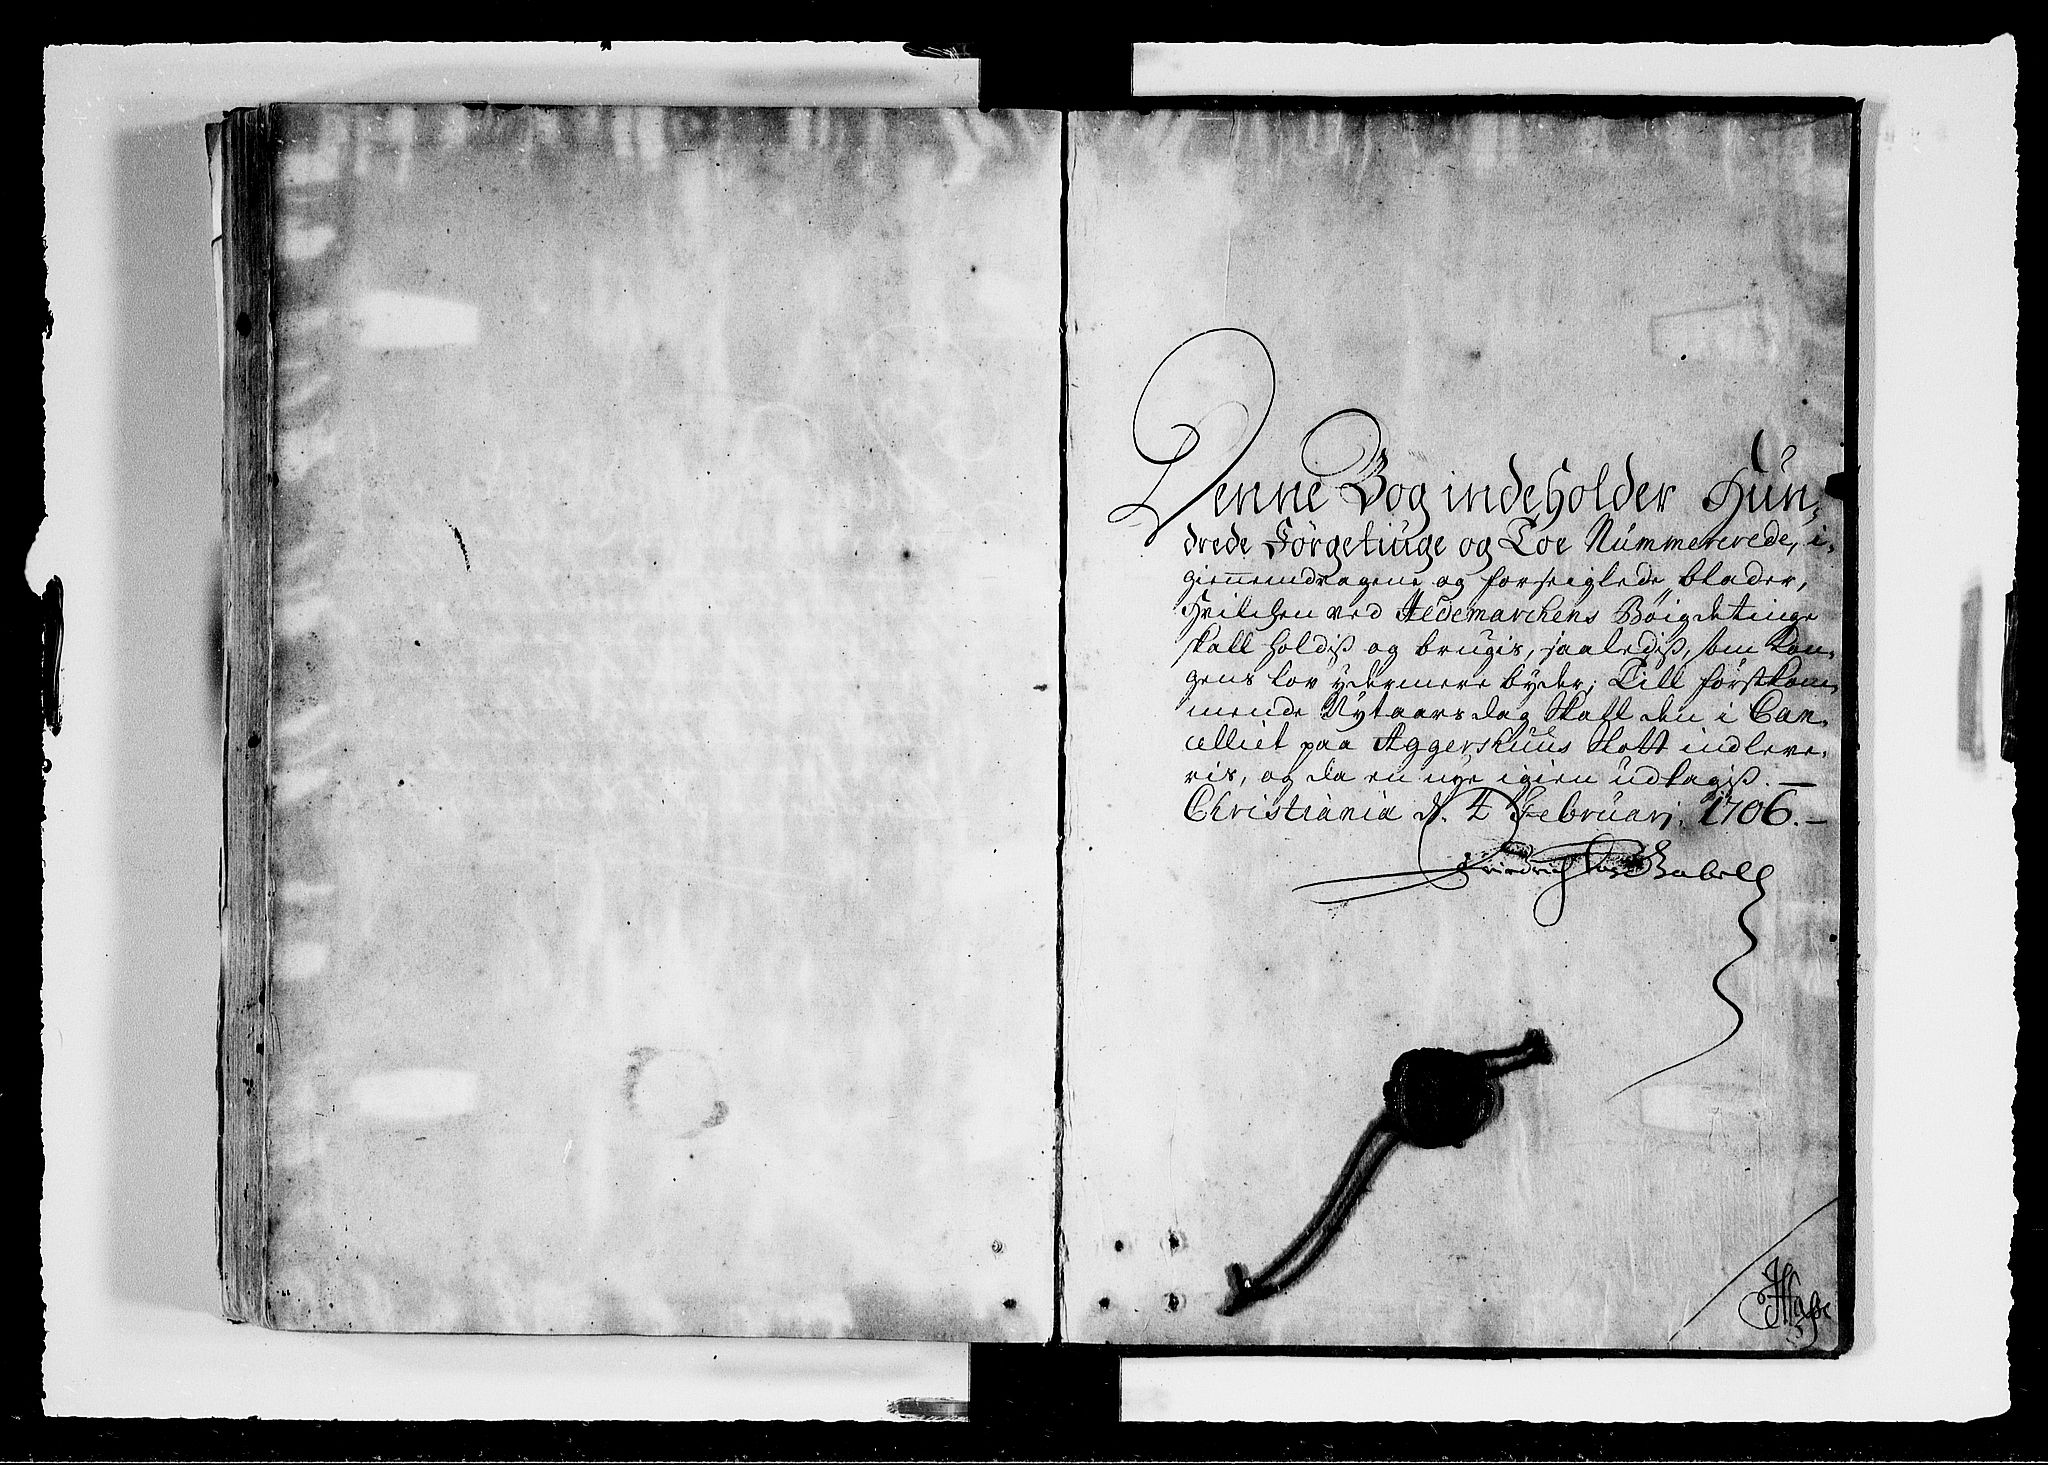 Denne Bog indeholder Hun-
drede Förgetiuge og Toe Nummererede, i-
giennemdragene og forseiglede blader,
Hvilchen ved Hedemarchens Böigdetinge
skall holdis og brugis, saaledis, som Kon-
gens lov ydermere byder; Till förstkom-
mende Nytaarsdag Skall den i Can-
celliet paa Aggershuus Slott indleve-
ris, og da en nye igien udtagis. —
Christiania d. 4 Februarj. 1706. —
Friedrich Gabell